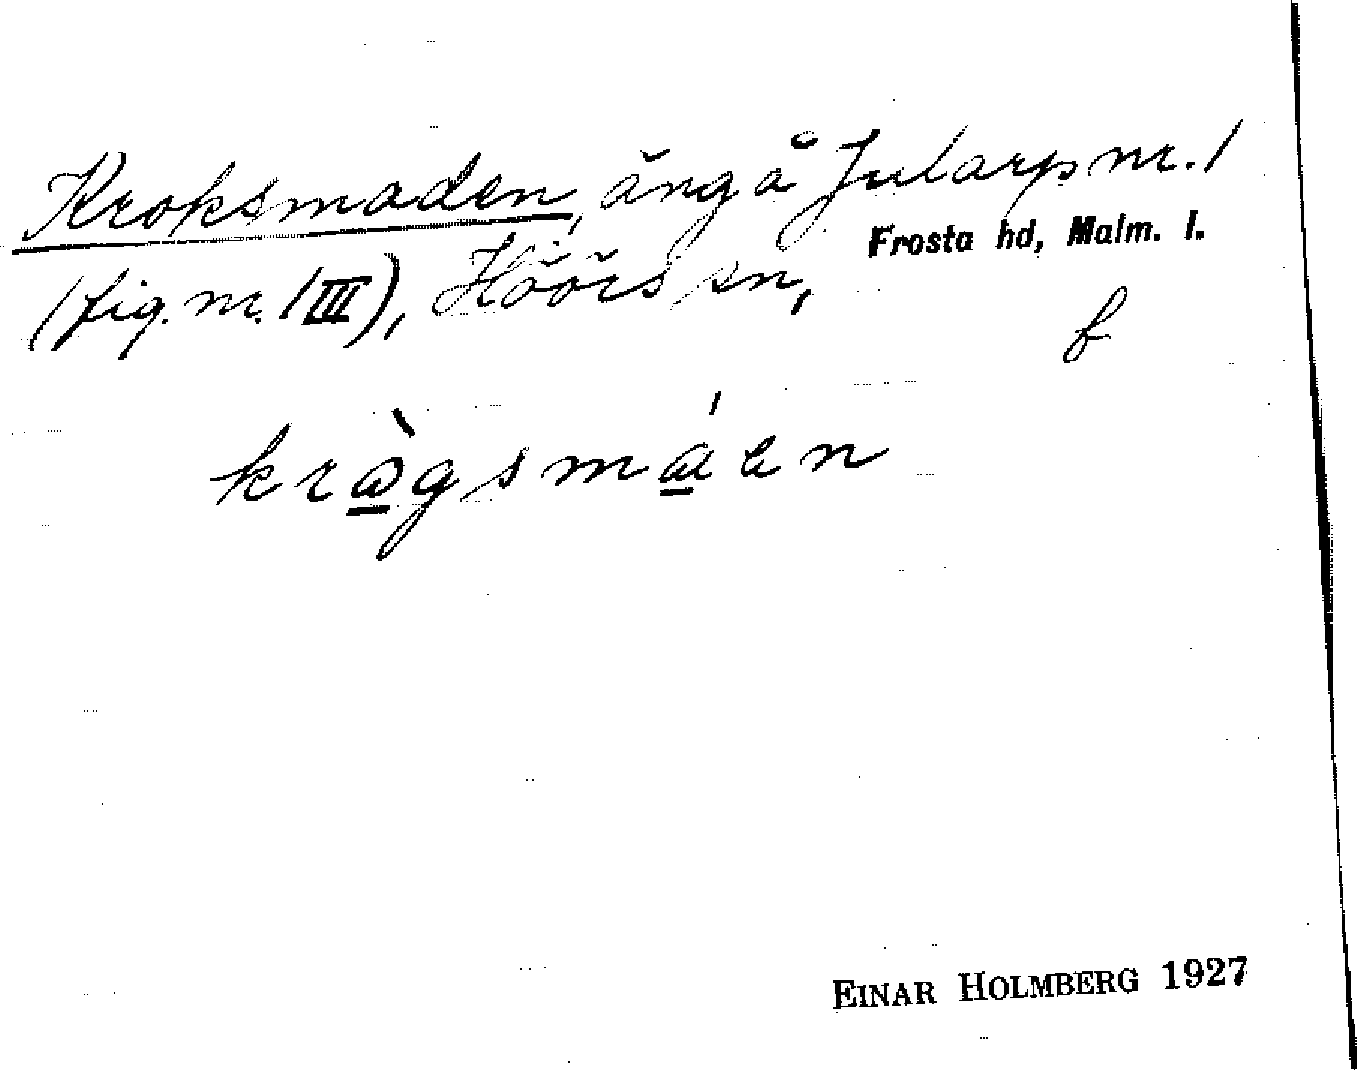 Kroksmaden, äng å Jularp nr. 1
Frosta hd, Malm. l.
(fig. nr. 1 III), Höörs sn,
f
kràgsmáen
EINAR HOLMBERG 1927